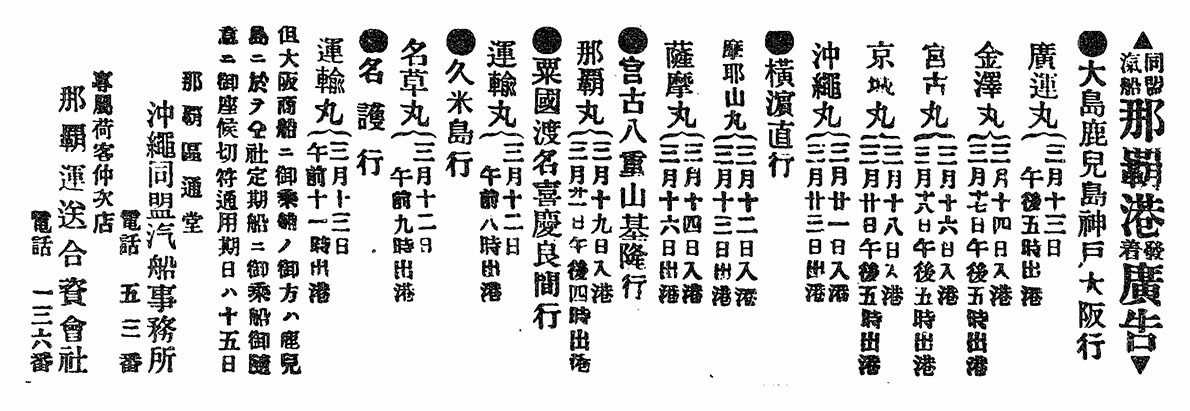 ▲同盟汽船那覇港發着廣告▼
●大島鹿兒島神戸大阪行
廣運丸 三月十三日午後五時出港
金澤丸 三月十四日入港 三月十七日午後五時出港
宮古丸 三月十六日入港 三月十八日午後五時出港
京城丸 三月十八日入港 三月廿日午後五時出港
沖繩丸 三月廿一日入港 三月廿三日出港
●横濵直行
摩耶山丸 三月十二日入港 三月十三日出港
薩摩丸 三月十四日入港 三月十六日出港
●宮古八重山基隆行
那覇丸 三月十九日入港 三月廿一日午後四時出港
●粟國渡名喜慶良間行
運輸丸 三月十二日午前八時出港
●久米島行
名草丸 三月十二日午前九時出港
●名護行
運輸丸 三月十三日午前十一時出港
但大阪商船ニ御乘船ノ御方ハ鹿兒
島ニ於テ仝社定期船ニ御乘船御隨
意ニ御座候切符通用期日ハ十五日
那覇區通堂
沖繩同盟汽船事務所
電話 五三番
專屬荷客仲次店
那覇運送合資會社
電話 一三六番